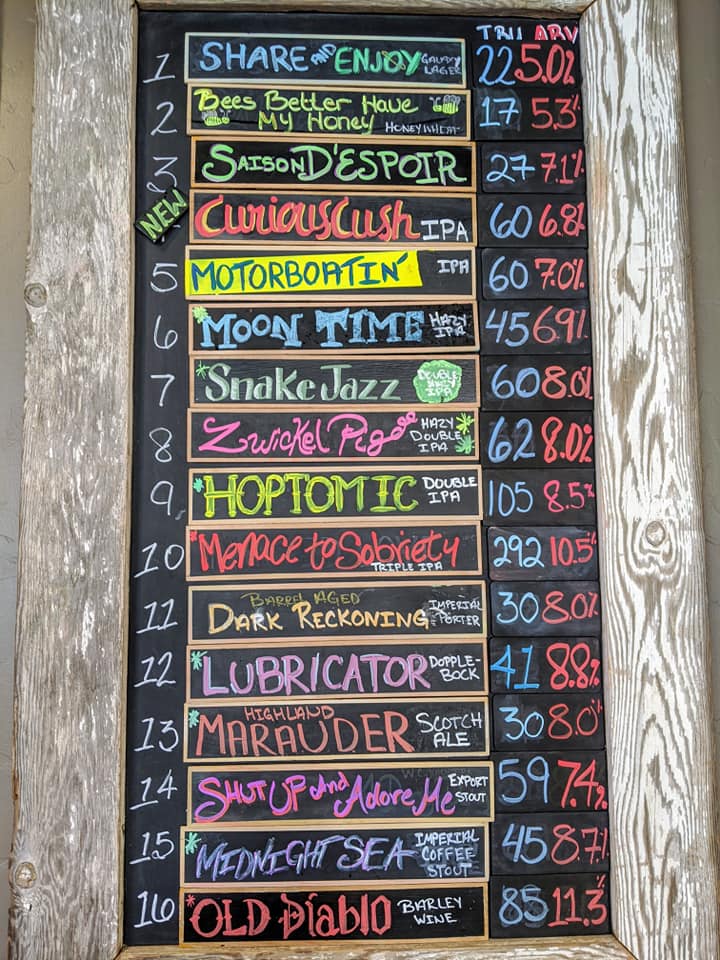 IBU ABV
1 SHARE AND ENJOY GALAXY LAGER 22 5.0%
2 Bees Better Have My Honey HONEY WHEAT 17 5.3%
3 SAISON D'ESPOIR 27 7.1%
NEW Curious Cush IPA 60 6.8%
5 MOTORBOATIN' IPA 60 7.0%
6 MOON TIME HAZY IPA 45 6.9%
7 Snake Jazz DOUBLE HAZY IPA 60 8.0%
8 Zwickel Pig HAZY DOUBLE IPA 62 8.0%
9 HOPTOMIC DOUBLE IPA 105 8.5%
10 Menace to Sobriety TRIPLE IPA 292 10.5%
11 BARREL AGED DARK RECKONING IMPERIAL PORTER 30 8.0%
12 LUBRICATOR DOPPLE-BOCK 41 8.8%
13 HIGHLAND MARAUDER SCOTCH ALE 30 8.0%
14 SHUT UP And Adore Me EXPORT STOUT 59 7.4%
15 MIDNIGHT SEA IMPERIAL COFFEE STOUT 45 8.7%
16 OLD Diablo BARLEY WINE 85 11.3%